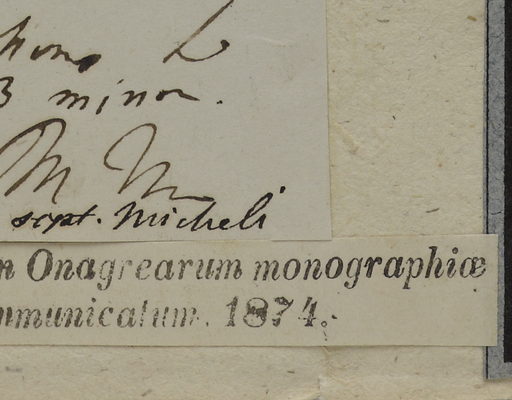 L
β minor.
M M
script. Micheli
n Onagrearum monographiæ
mmunicatum. 1874.